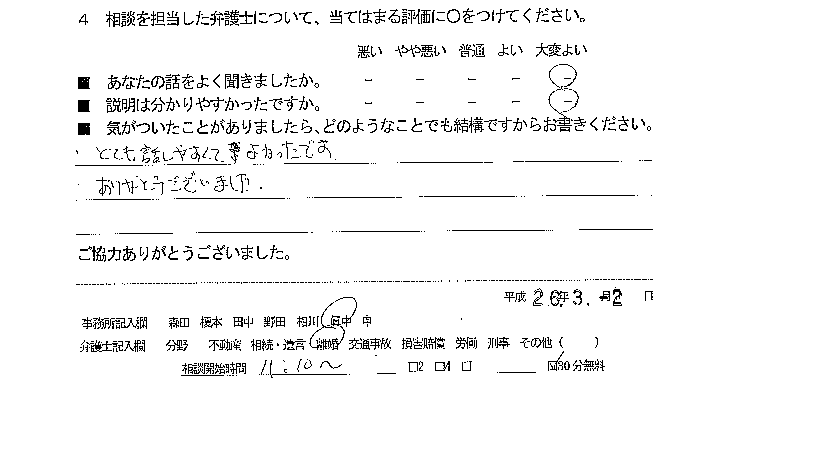 4 相談を担当した弁護士について、当てはまる評価に〇をつけてください。
悪い やや悪い 普通 よい 大変よい
■ あなたの話をよく聞きましたか。 - - - - -
■ 説明は分かりやすかったですか。 - - - - -
■ 気がついたことがありましたら、どのようなことでも結構ですからお書きください。
とても話しやすくて よかったです
ありがとうございました.
ご協力ありがとうございました。
平成 26年3. 2 日
事務所記入欄 森田 榎本 田中 野田 相川
弁護士記入欄 分野 不動産 相続・遺言 離婚 交通事故 損害賠償 労働 刑事 その他 ( )
相談開始時間 11:10〜 □2 □4 □ 30分無料